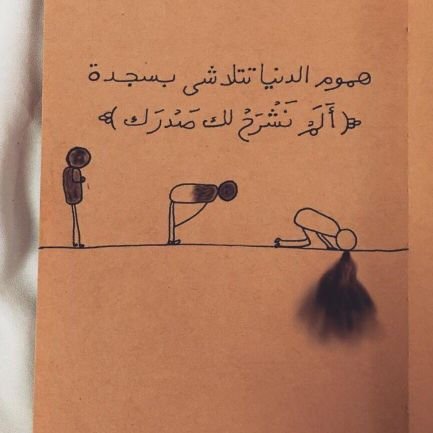 هموم الدنيا تتلاشى بسجدة
﴿أَلَمْ نَشْرَحْ لك صَدْرَك﴾